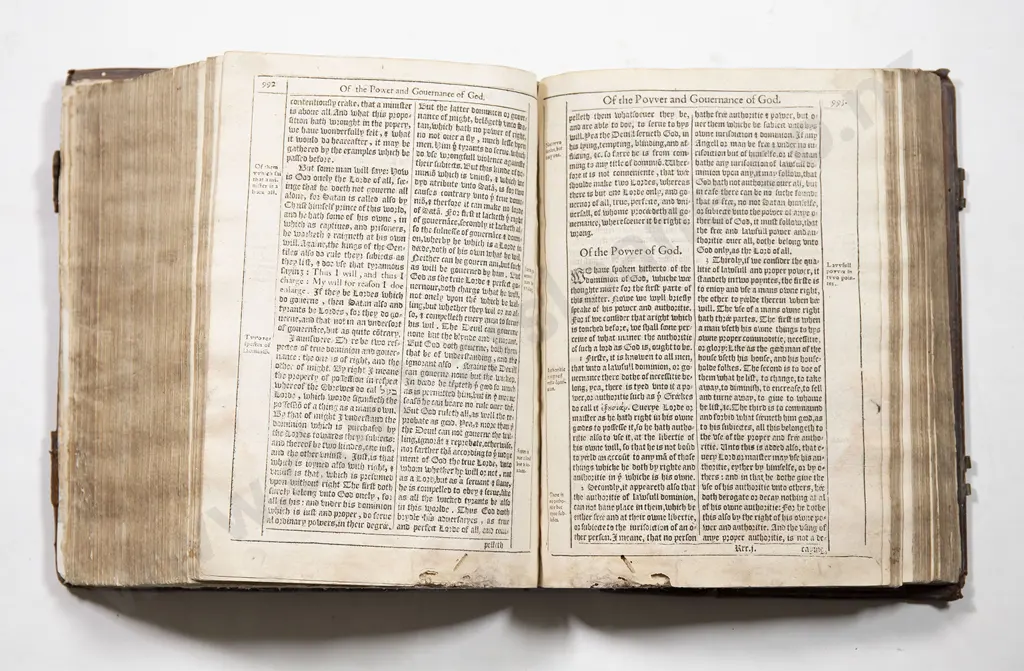 992
Of the Power and Gouernance of God.
contentiously crake, that a minister
is aboue all. And what this propo-
sition hath wrought in the popery,
we haue wonderfully felt, & what
it would do heareafter, it may be
gathered by the examples which be
passed before.
But some man will saye: How
is God onely the Lorde of all, see-
ing that he doeth not gouerne all
alone, for Satan is called also by
Christ himself prince of this world,
and he hath some of his owne, in
which as captiues, and prisoners,
he worketh & raigneth at his own
will. Againe, the kings of the Gen-
tiles also do rule they subiects as
they list, & doe vse that tyrannous
saying: Thus I will, and thus I
charge: My will for reason I doe
enlarge. If they be Lordes which
do gouerne, then Satan also and
tyrants be Lordes, for they do go-
uerne, and that not in an vndersort
of gouernance, but as quite cõtrary.
I aunswere. There be two res-
pectes of true dominion and gouer-
nance: the one is of right, and the
other of might. By right I meane
the property of possession in respect
whereof the Hebrewes do cal בעל
Lorde, which worde signifieth the
possessõ of a thing as a mans own.
By that of might I vnderstand the
dominion which is purchased by
the Lordes towardes they subiects:
and thereof be two kindes, one iust,
and the other vniust. Iust, is that
which is ioyned also with right, &
vniust is that, which is presumed
vpon without right. The first doth
surely belong vnto God onely, for
all is his: and vnder his dominion
which is iust and proper, do serue
al ordinary powers, in their degree.
But the latter dominion or gouer-
nance of might, belõgeth vnto Sa-
tan, which hath no power of right,
no not ouer a fly, much lesse vpon
men. Him þ tyrants do serue, which
do vse wrongfull violence against
their subiects. But this kinde of do-
miniõ which is vniust, & which we
dyd attribute vnto Satã, is for two
causes contrary vnto þ true domi-
niõ, & therefore it can make no lorde
of Satã. For first it lacketh þ right
of gouernãce. Secondly it lacketh al-
so the fulnesse of gouernãce & domi-
on, wherby he which is a Lorde in
deede, doth of his own what he wil.
Neither can he gouern any, but such
as will be gouerned by him. But
God as the true Lorde & perfect go-
uernour, doth charge what he will,
not onely vpon thẽ which be wil-
ling, but whether they wil or no al-
so, & compelleth euery man to serue
his wil. The Deuil can gouerne
none but the blynde and ignorant.
But God doth gouerne, both them
that be of vnderstanding, and the
ignorant also. Againe the Deuil
can gouerne none but the wicked.
In deede he tẽpteth þ god so much
as is permitted him, but in þ meane
season he can beare no rule ouer thẽ.
But God ruleth all, as well the re-
probate as god. Yea, & more than þ
the Deuil can not gouerne the wil-
ling, ignorãt & reprobate, otherwise,
nor farther thã according to þ iudge-
ment of God the true Lord, vnto
whom whether he will or not, not
as a Lord, but as a seruant & slaue,
he is compelled to obey & serue, like
as all the wicked tyrants be also
in this worlde. Thus God doth
brydle his aduersaryes, as true
and perfect Lorde of all, and com-
pelleth
Of the Povver and Gouernance of God.
993.
pelleth them whatsoeuer they be,
and are able to doe, to serue to hys
wil. Yea the Deuil serueth God, in
his lying, tempting, blinding, and af-
flicting, &c. so farre he is from com-
ming to any title of dominiõ. Ther-
fore it is not conuenient, that we
shoulde make two Lordes, whereas
there is but one Lorde only, and go-
uernor of all, true, perfecte, and vni-
uersall, of whome proceedeth all go-
uernance, wheresoeuer it be right or
wrong.
Of the Povver of God.
WE haue spoken hitherto of the
dominion of God, whiche we
thought meete for the first parte of
this matter. Now we wyll briefly
speake of his power and authoritie.
For if we consider that aright which
is touched before, we shall some per-
ceiue of what maner the authoritie
of such a lord as God is, ought to be.
1 Firste, it is known to all men,
that vnto a lawfull dominion, or go-
uernance there dothe of necessitie be-
long, yea, there is tyed vnto it a po-
wer, or authoritie such as þ Greekes
do call it ἐξουσίαν. Euerye Lorde or
maister as he hath right in his owne
goodes to possesse it, so he hath autho-
ritie also to vse it, at the libertie of
his owne will, so that he is not bound
to yeeld an accoũt to any mã of those
things whiche he doth by righte and
authoritie in þ whiche is his owne.
2 Secondly, it appeareth also that
the authoritie of lawfull dominion,
can not haue place in them, which be
either free and at their owne libertie,
or subiecte to the iurisdiction of an o-
ther person. I meane, that no person
hathe free authoritie & power, but o-
uer them whiche be subiect vnto hys
owne iurisdiction & dominion. If any
Angell or man be free & vnder no iu-
risdiction but of himselfe, or if Satan
hathe any iurisdiction of lawfull do-
minion vpon any, it may folow, that
God hath not authoritie ouer all, but
in case there can be no suche founde
that is free, no not Satan himselfe,
or subiecte vnto the power of anye o-
ther but of God, it must folow, that
the free and lawfull power and au-
thoritie ouer all, dothe belong vnto
God only, as the Lord of all.
3 Thirdly, if we consider the qua-
litie of lawfull and proper power, it
standeth in two poyntes, the firste is
to enioy and vse a mans owne right,
the other to yelde therein when hee
will. The vse of a mans owne right
hath thrée partes. The first is when
a man vseth his owne things to hys
owne proper commoditie, necessitie,
or glory: Like as the good man of the
house vseth his house, and his house-
holde folkes. The second is to doe of
them what he list, to change, to take
away, to diminish, to encrease, to sell
and turne away, to giue to whome
he list, &c. The third is to command
and forbid what seemeth him good, as
to his subiectes, all this belongeth to
the vse of the proper and free autho-
ritie. Unto this is added also, that e-
uery Lord or maister may vse his au-
thoritie, eyther by himselfe, or by o-
thers: and in that he dothe giue the
vse of his authoritie vnto others, he
doth derogate or decay nothing at al
of his owne authoritie: For he dothe
this also by the right of his owne po-
wer and authoritie. And the vsing of
anye proper authoritie, is not a de-
Lawfull
power in
two poin-
tes.
Rrr.j.
caying